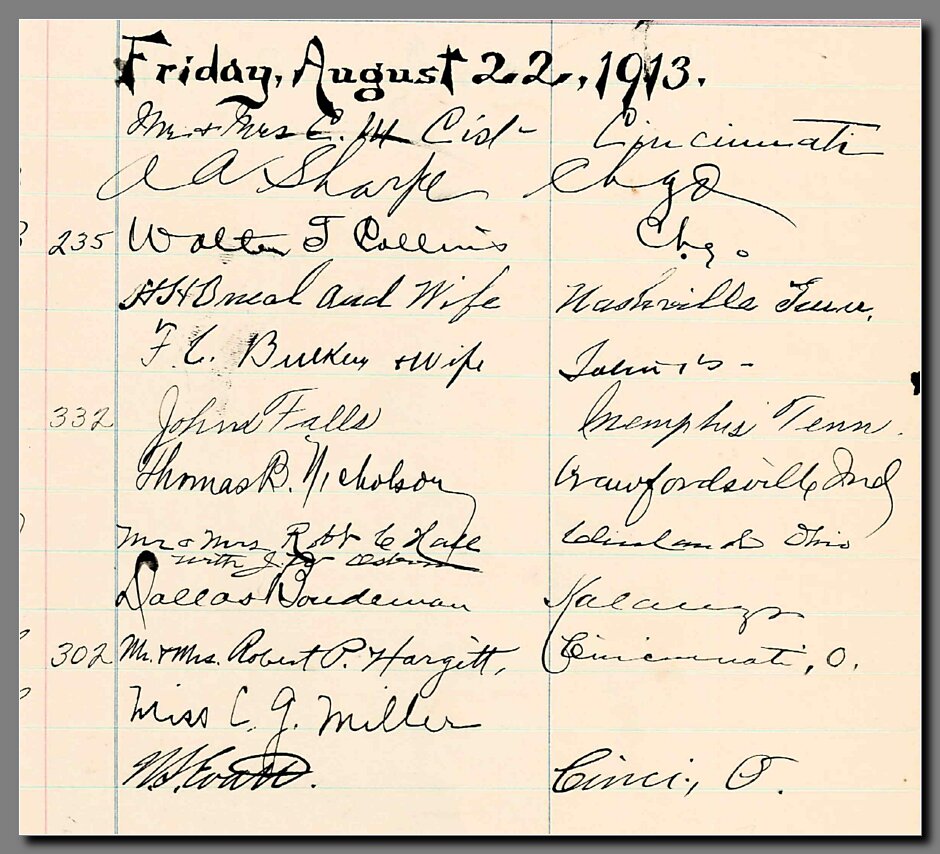 Friday, August 22, 1913.
Mr. & Mrs C. Cincinnati
A A Sharpe Chgo
235 Walter T Collins Chg.
H H and Wife Nashville Tenn.
F. C. & Wife
332 John Falls Memphis Tenn.
Thomas B. Nicholson Crawfordsville Ind
Mr & Mrs Robt C Hall Cleveland Ohio
with J.
Dallas Boudeman Kalamazoo
302 Mr. & Mrs. Robert P. Hargitt, Cincinnati, O.
Miss C. G. Miller
Cinci., O.